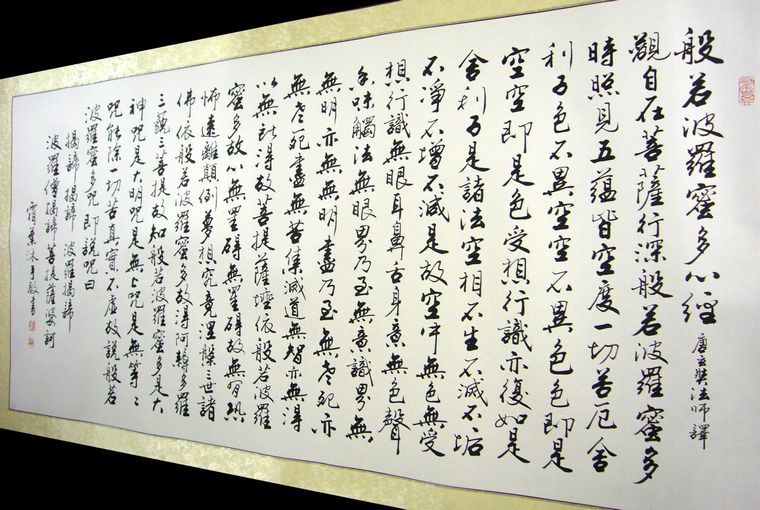 般若波羅蜜多心經 唐玄奘法師譯
觀自在菩薩行深般若波羅蜜多
時照見五蘊皆空度一切苦厄舍
利子色不異空空不異色色即是
空空即是色受想行識亦復如是
舍利子是諸法空相不生不滅不垢
不淨不增不減是故空中無色無受
想行識無眼耳鼻舌身意無色聲
香味觸法無眼界乃至無意識界無
無明亦無無明盡乃至無老死亦
無老死盡無苦集滅道無智亦無得
以無所得故菩提薩埵依般若波羅
蜜多故心無罣礙無罣礙故無有恐
怖遠離顛倒夢想究竟涅槃三世諸
佛依般若波羅蜜多故得阿耨多羅
三藐三菩提故知般若波羅蜜多是大
神咒是大明咒是無上咒是無等々
咒能除一切苦真實不虛故說般若
波羅蜜多咒即說咒曰
揭諦 揭諦 波羅揭諦
波羅僧揭諦 菩提薩婆訶
沐手敬書